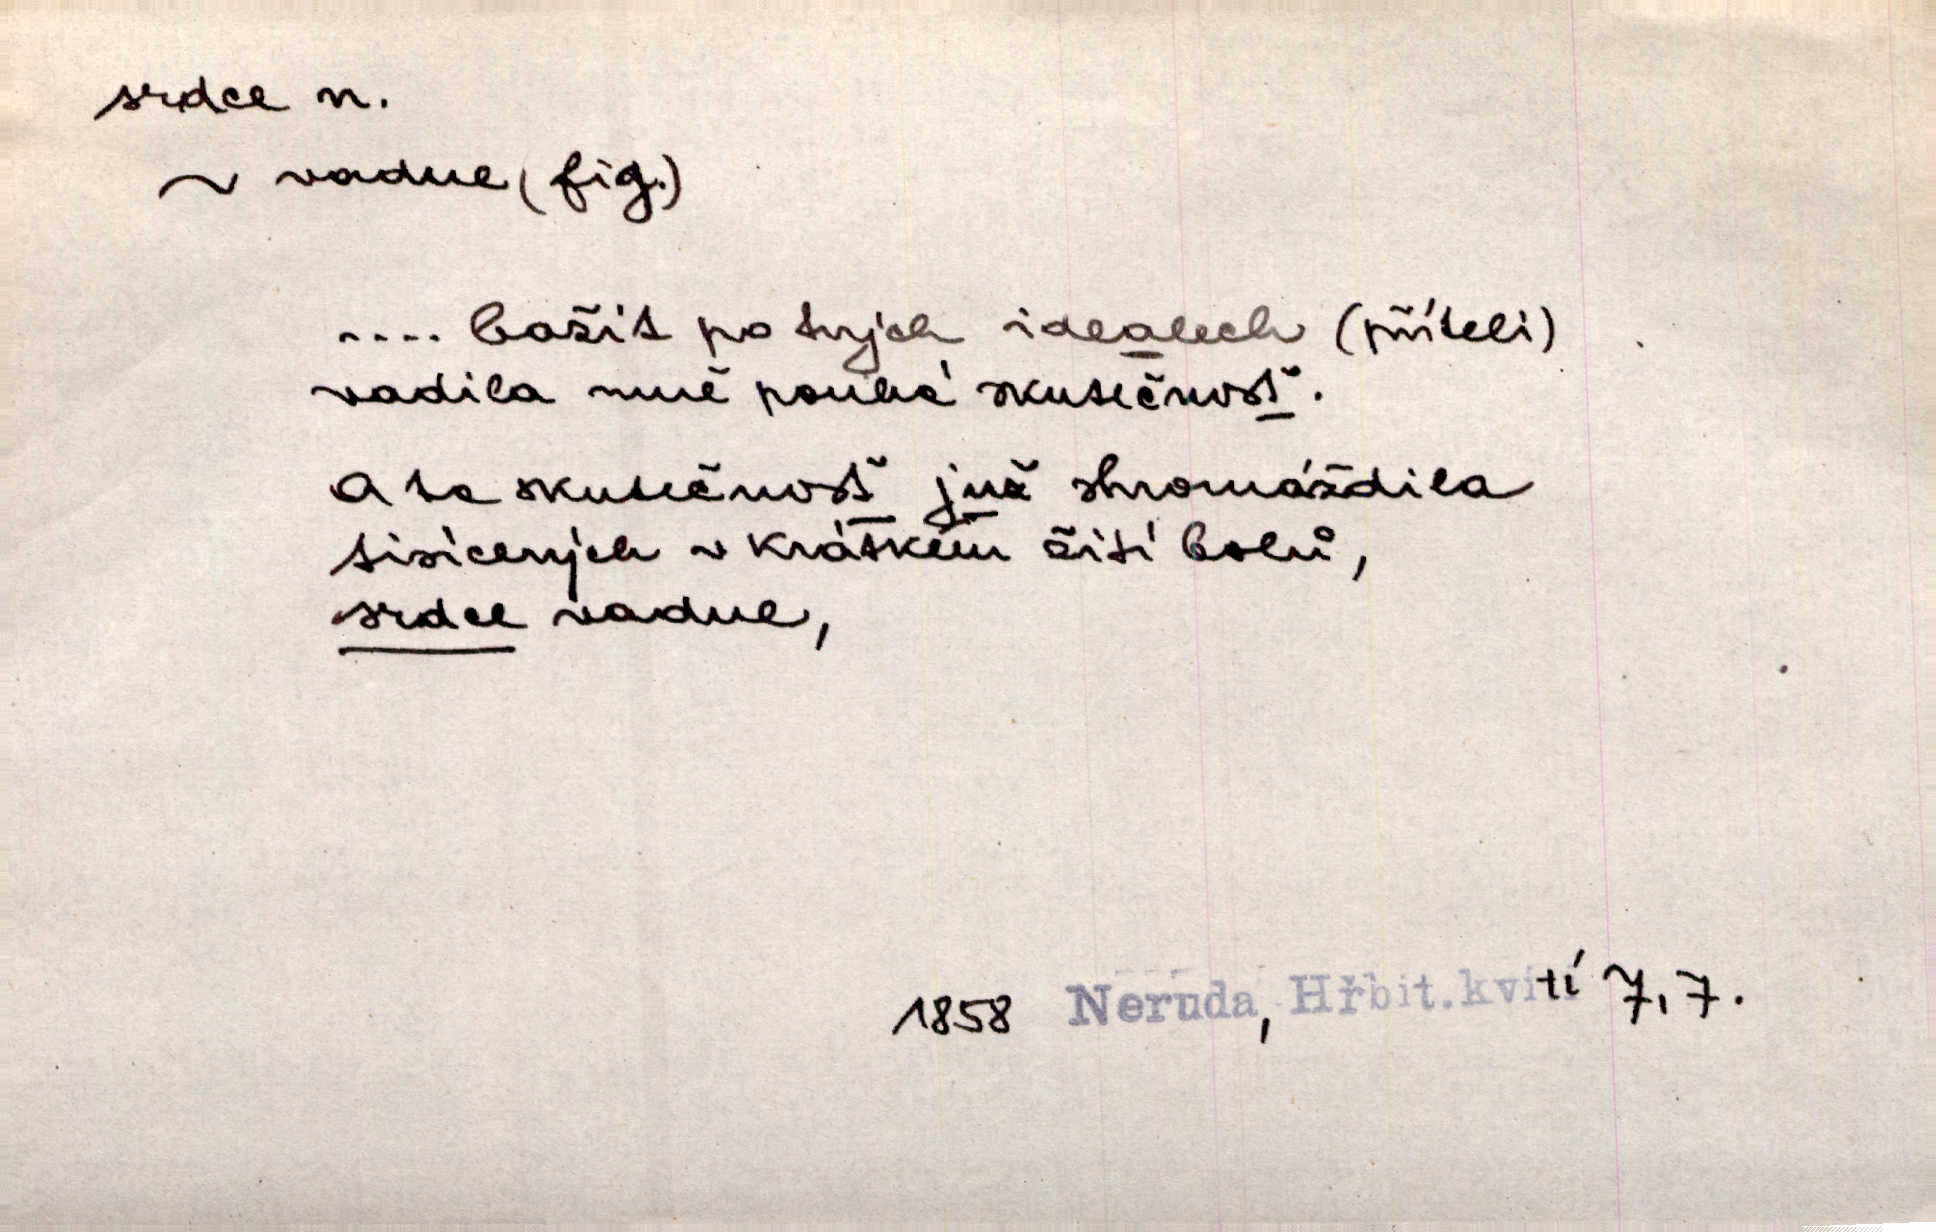 srdce n.
~ vadne (fig.)
.... bažit po tvých idealech (příteli)
vadila mně pouhá skutečnosť.
A ta skutečnosť juž shromáždila
tisícerých v krátkém žití bolů,
srdce vadne,
1858 Neruda, Hřbit.kvítí 7, 7.